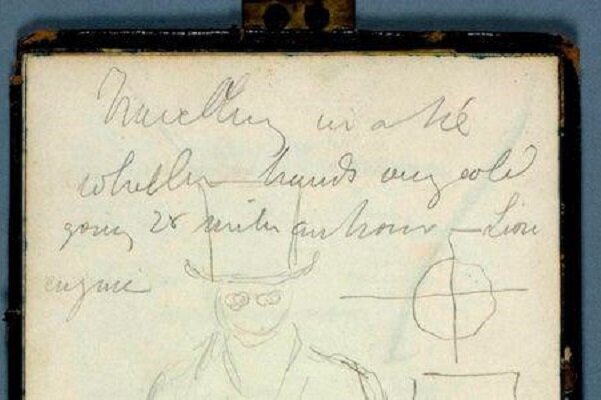 Travelling in a
whether hands any cold
going 28 miles an hour – Lion
engine